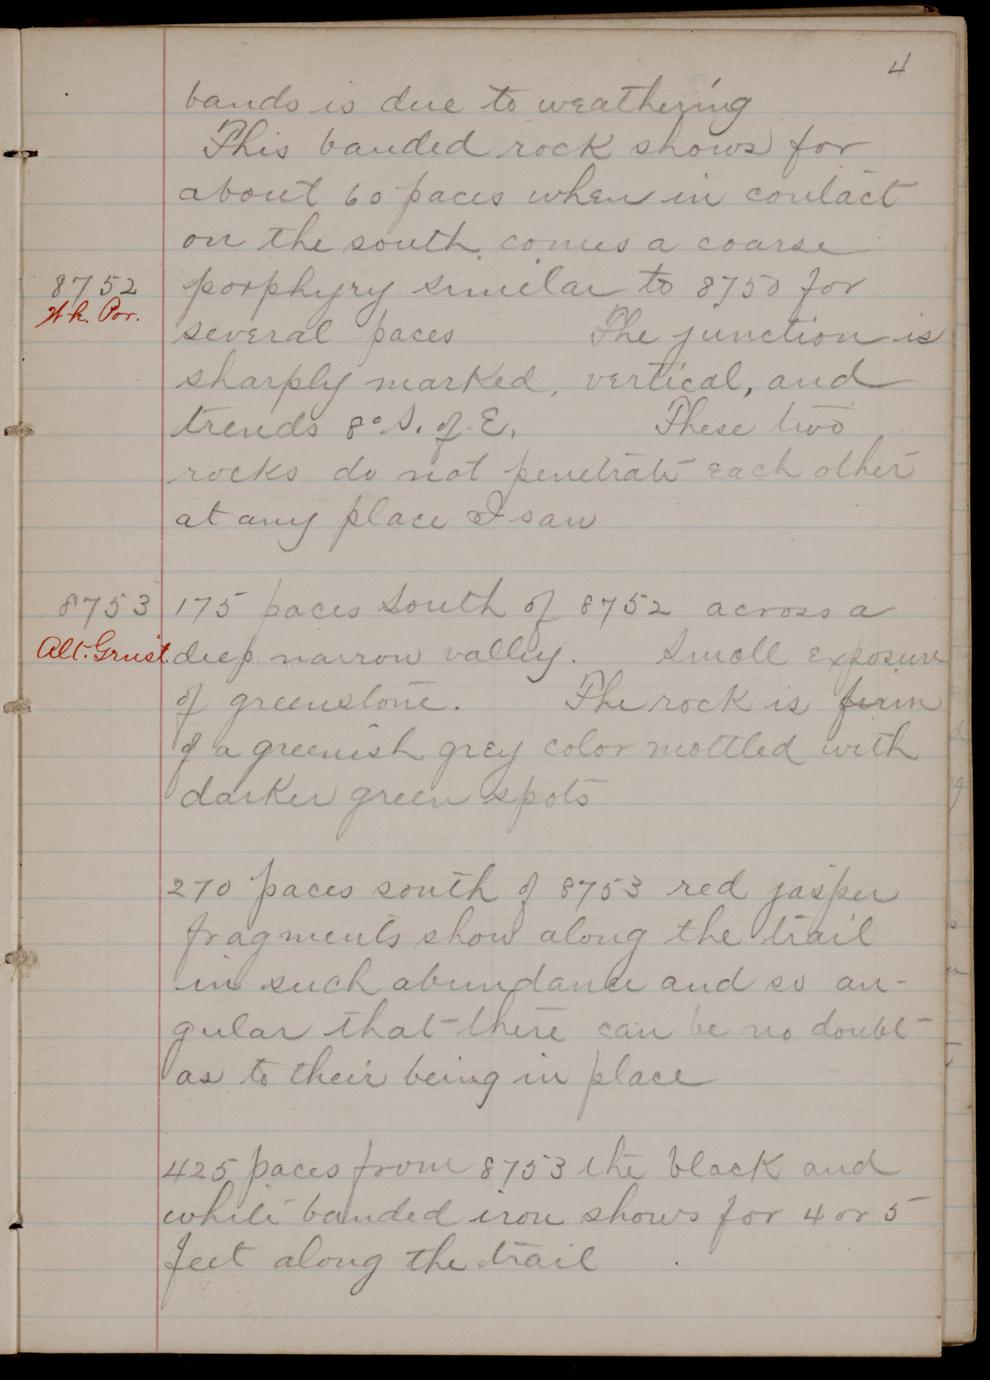 4
bands is due to weathering
This banded rock shows for
about 60 paces when in contact
on the south comes a coarse
8752 porphyry similar to 8750 for
Wh. Por.
several paces The junction is
sharply marked, vertical, and
trends 8° S. of E. These two
rocks do not penetrate each other
at any place I saw
8753 175 paces south of 8752 across a
Alt. Grnst. deep narrow valley. Small exposure
of greenstone. The rock is firm
of a greenish grey color mottled with
darker green spots
270 paces south of 8753 red jasper
fragments show along the trail
in such abundance and so an-
gular that there can be no doubt
as to their being in place
425 paces from 8753 the black and
white banded iron shows for 4 or 5
feet along the trail